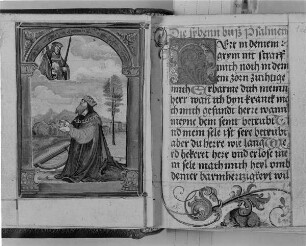 Die syben buß Psalmen
Herr in deinem
zorn nit straff
mich noch in dein
em zorn züchtige
mich Erbarme dich mein
herr wan ich byn kranck
mich gesundt herr wann
meyne bein seint betrubt
und mein sele ist sere betrubt
aber du herre wie lang
bekeret here und erlose
sele mach mich heyl umb
deiner barmhertzigkeyt wil